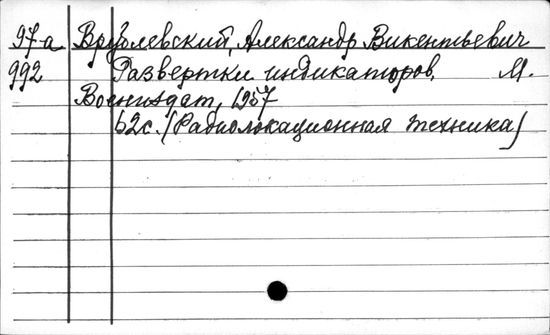 97-а Врублевский, Александр Викентьевич
992 Развертки индикаторов. М.
Воениздат, 1957
62с. (Радиолокационная техника)